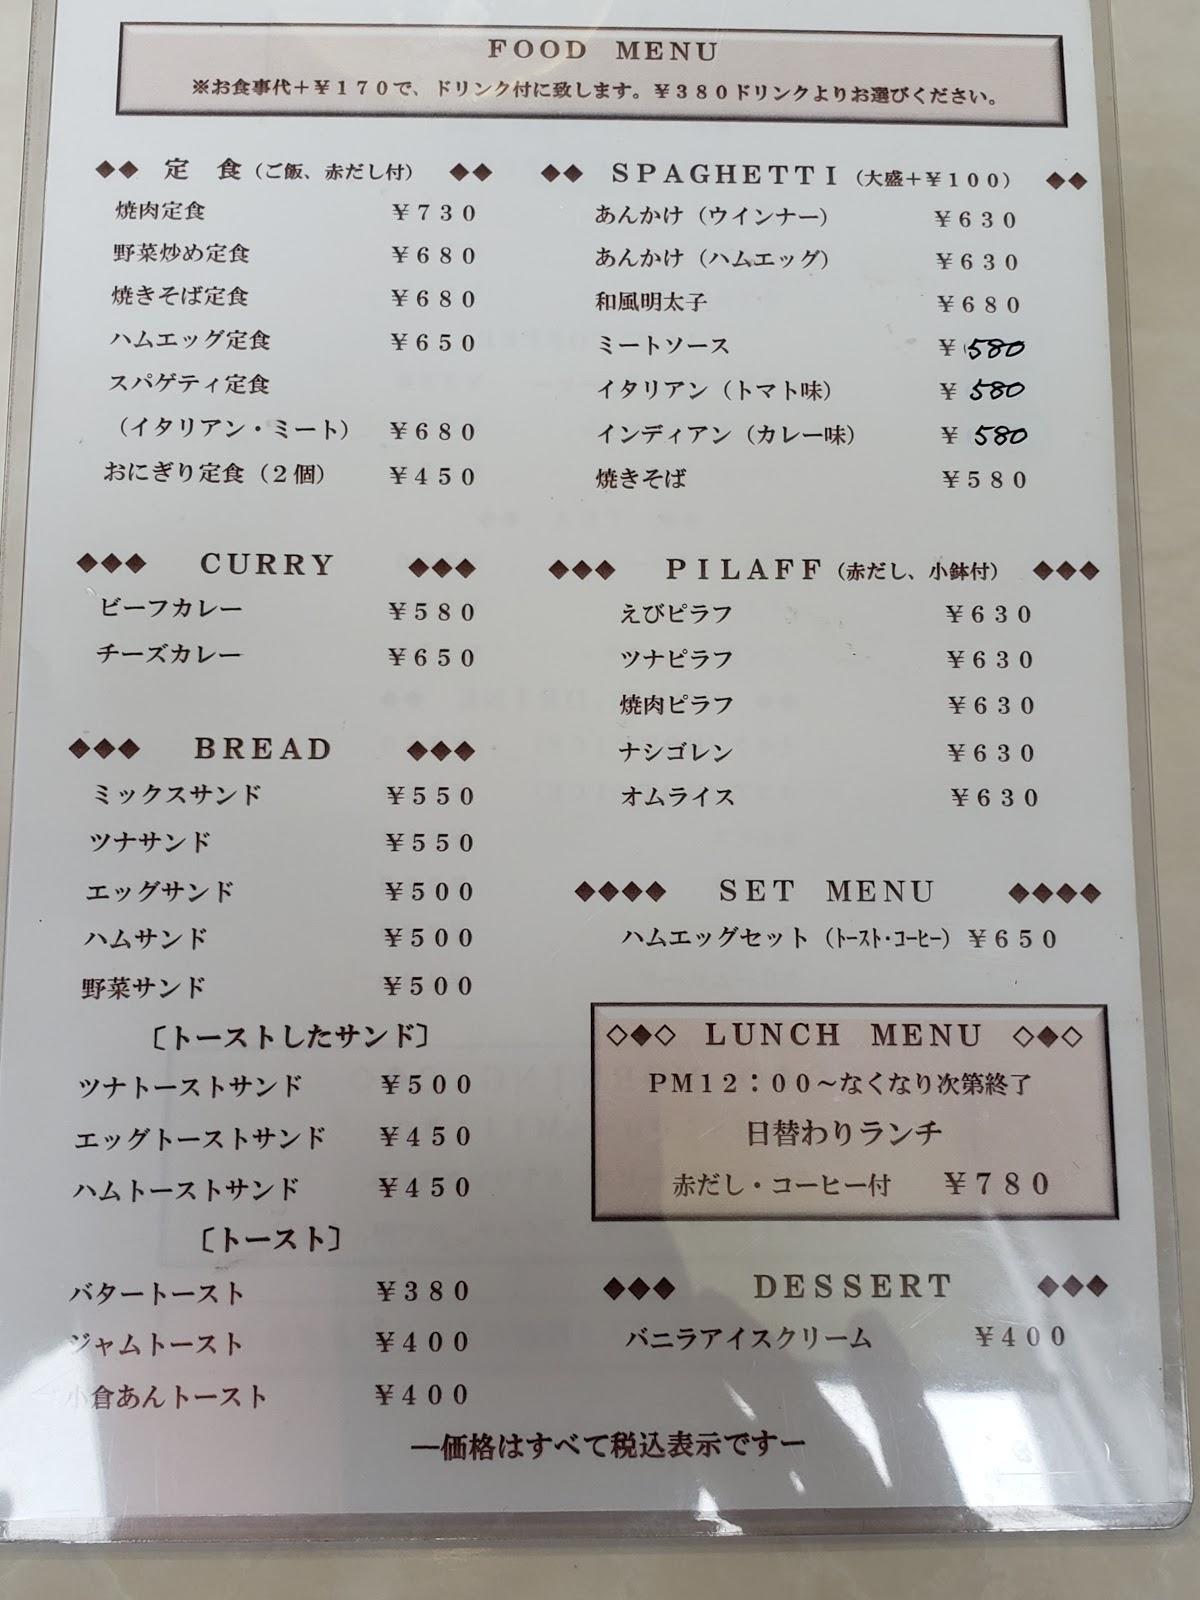 FOOD MENU
※お食事代＋￥１７０で、ドリンク付に致します。￥３８０ドリンクよりお選びください。
◆◆ 定 食（ご飯、赤だし付） ◆◆
焼肉定食 ￥７３０
野菜炒め定食 ￥６８０
焼きそば定食 ￥６８０
ハムエッグ定食 ￥６５０
スパゲティ定食
（イタリアン・ミート） ￥６８０
おにぎり定食（２個） ￥４５０
◆◆◆ CURRY ◆◆◆
ビーフカレー ￥５８０
チーズカレー ￥６５０
◆◆◆ BREAD ◆◆◆
ミックスサンド ￥５５０
ツナサンド ￥５５０
エッグサンド ￥５００
ハムサンド ￥５００
野菜サンド ￥５００
〔トーストしたサンド〕
ツナトーストサンド ￥５００
エッグトーストサンド ￥４５０
ハムトーストサンド ￥４５０
〔トースト〕
バタートースト ￥３８０
ジャムトースト ￥４００
小倉あんトースト ￥４００
◆◆ SPAGHETTI（大盛＋￥１００） ◆◆
あんかけ（ウインナー） ￥６３０
あんかけ（ハムエッグ） ￥６３０
和風明太子 ￥６８０
ミートソース ￥580
イタリアン（トマト味） ￥580
インディアン（カレー味） ￥580
焼きそば ￥５８０
◆◆◆ PILAFF（赤だし、小鉢付） ◆◆◆
えびピラフ ￥６３０
ツナピラフ ￥６３０
焼肉ピラフ ￥６３０
ナシゴレン ￥６３０
オムライス ￥６３０
◆◆◆◆ SET MENU ◆◆◆◆
ハムエッグセット（ﾄｰｽﾄ・ｺｰﾋｰ） ￥６５０
◇◆◇ LUNCH MENU ◇◆◇
PM１２：００～なくなり次第終了
日替わりランチ
赤だし・コーヒー付 ￥７８０
◆◆◆ DESSERT ◆◆◆
バニラアイスクリーム ￥４００
―価格はすべて税込表示です―